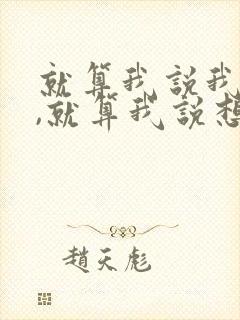 就算我說我
,就算我說想
趙天彪